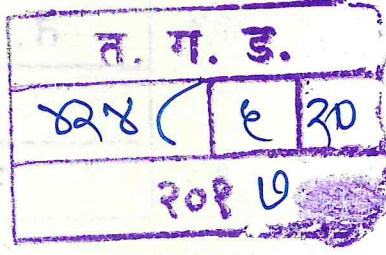 त. ग. ड.
४२४८ ६ ३०
२०१७